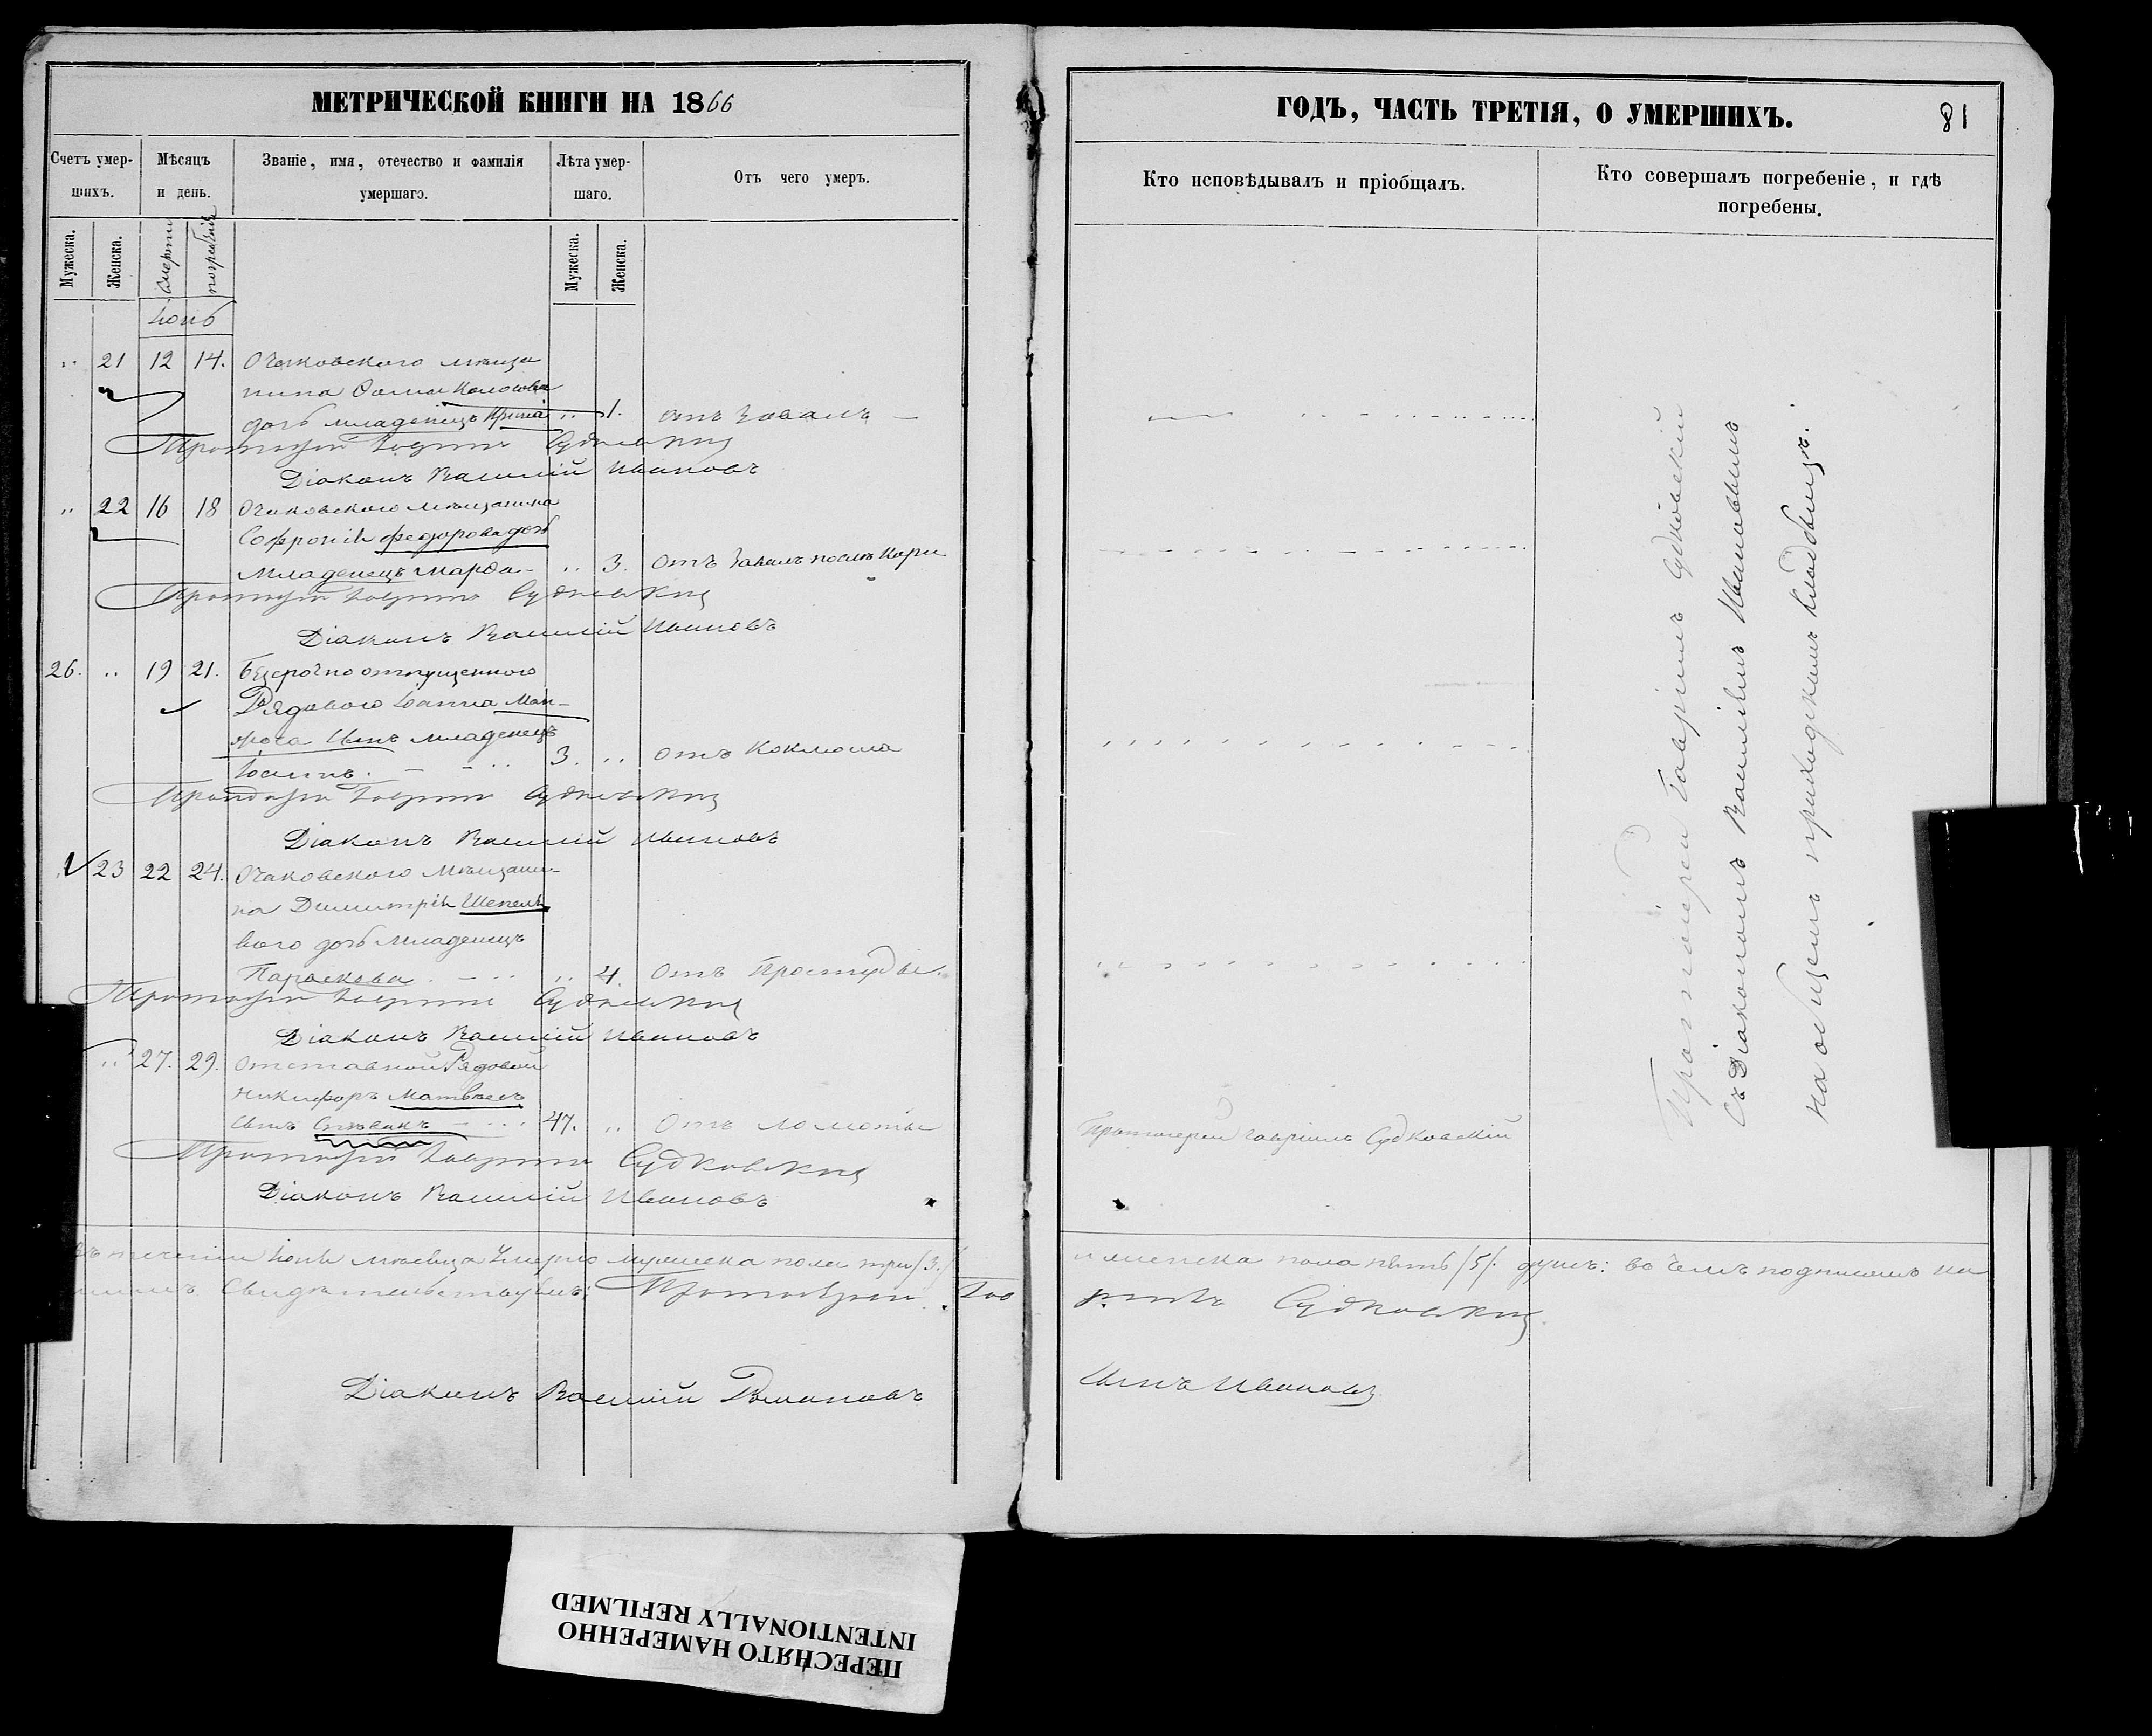 МЕТРИЧЕСКОЙ КНИГИ НА 1866
Счетъ умер-
шихъ.
Мѣсяцъ
и день.
Званіе, имя, отечество и фамилія
умершаго.
Лѣта умер-
шаго.
Отъ чего умеръ.
Мужеска.
Женска.
Смерти
погребенія
Мужеска.
Женска.
Іюнь
" 21 12 14. Очаковского мѣща
нина Фомы
дочь младенецъ " 1. отъ
Протоіерей Гавріилъ Судковскій
Діаконъ Василій Ивановъ
" 22 16 18 Очаковского мѣщанина
Софронія Федорова дочь
Младенецъ Марѳа - " 3. отъ послѣ Кори
Протоіерей Гавріилъ Судковскій
Діаконъ Василій Ивановъ
26. " 19 21. Безсрочно отпущенного
Рядового Іоанна Ман-
сынъ младенецъ
Іоаннъ. 3. " отъ Коклюша
Протоіерей Гавріилъ Судковскій
Діаконъ Василій Ивановъ
23 22 24. Очаковского мѣщани-
на Димитрія Шепеле
вого дочь младенецъ
Параскева " 4. отъ Простуды.
Протоіерей Гавріилъ Судковскій
Діаконъ Василій Ивановъ
" 27. 29. Отставной Рядовой
Никифоръ Матвѣевъ
сынъ Спѣвакъ 47. " Отъ ломоты
Протоіерей Гавріилъ Судковскій
Діаконъ Василій Ивановъ
теченіи Іюня мѣсяца Умерло мужеска пола три /3./
Свидѣтельствуемъ: Протоіерей Гав
Діаконъ Василій Романовъ
ГОДЪ, ЧАСТЬ ТРЕТІЯ, О УМЕРШИХЪ.
81
Кто исповѣдывалъ и пріобщалъ.
Кто совершалъ погребеніе, и гдѣ
погребены.
Протоіерей Гавріилъ Судковскій
съ Діакономъ Василіемъ Ивановымъ
на общемъ приходскомъ кладбищѣ.
Протоіерей Гавріилъ Судковскій
женска пола пять /5/. душъ: въ чемъ подписомъ на
ріилъ Судковскій
сынъ Ивановъ
ПЕРЕСНЯТО НАМЕРЕННО
INTENTIONALLY REFILMED